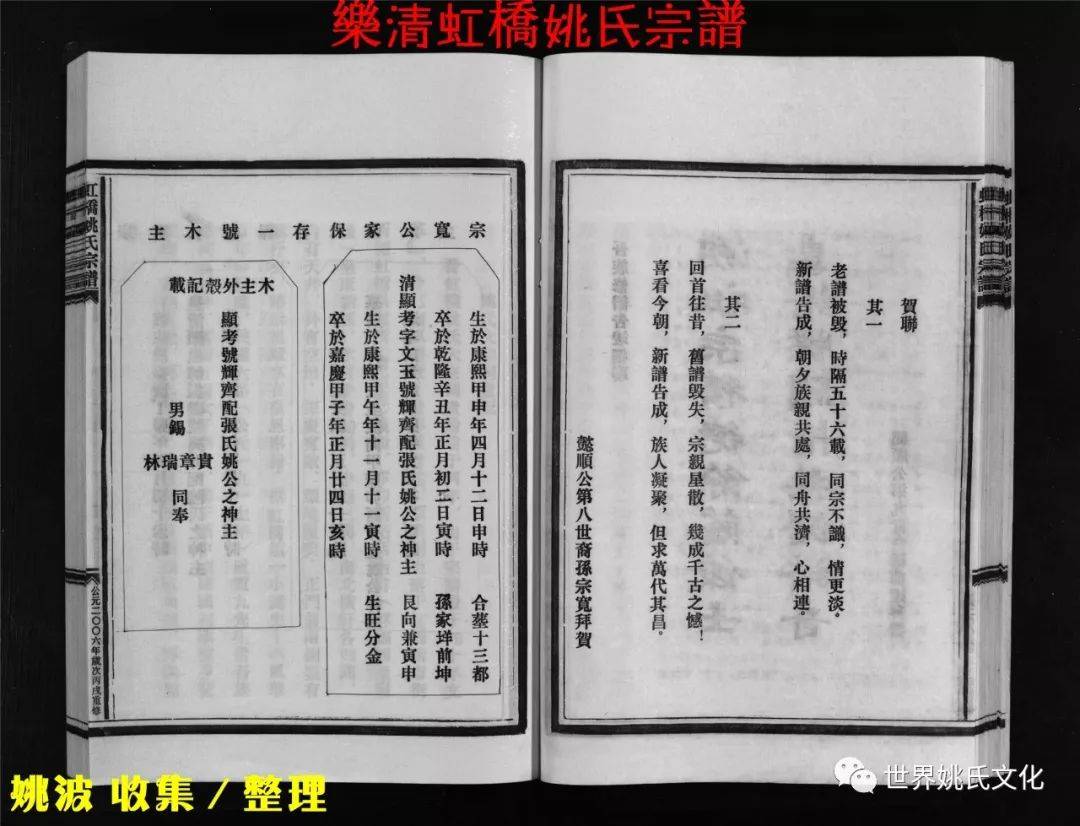 樂清虹橋姚氏宗譜
賀聯
其一
老譜被毀，時隔五十六載，同宗不識，情更淡。
新譜告成，朝夕族親共處，同舟共濟，心相連。
其二
回首往昔，舊譜毀失，宗親星散，幾成千古之憾！
喜看今朝，新譜告成，族人凝聚，但求萬代其昌。
懿順公第八世裔孫宗寬拜賀
宗寬公家保存一號木主
生於康熙甲申年四月十二日申時 合塟十三都
卒於乾隆辛丑年正月初二日寅時 孫家垟前坤
清顯考字文玉號輝齊配張氏姚公之神主 艮向兼寅申
生於康熙甲午年十一月十一寅時 生旺分金
卒於嘉慶甲子年正月廿四日亥時
木主外殼記載
顯考號輝齊配張氏姚公之神主
男錫
貴章瑞林
同奉
虹橋姚氏宗譜
公元二〇〇六年歲次丙戌重修
姚波 收集 / 整理
世界姚氏文化